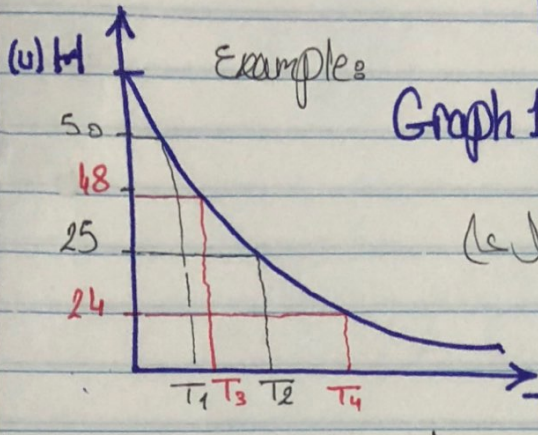 Example:
Graph 1
50
48
25
24
T1 T3 T2 T4